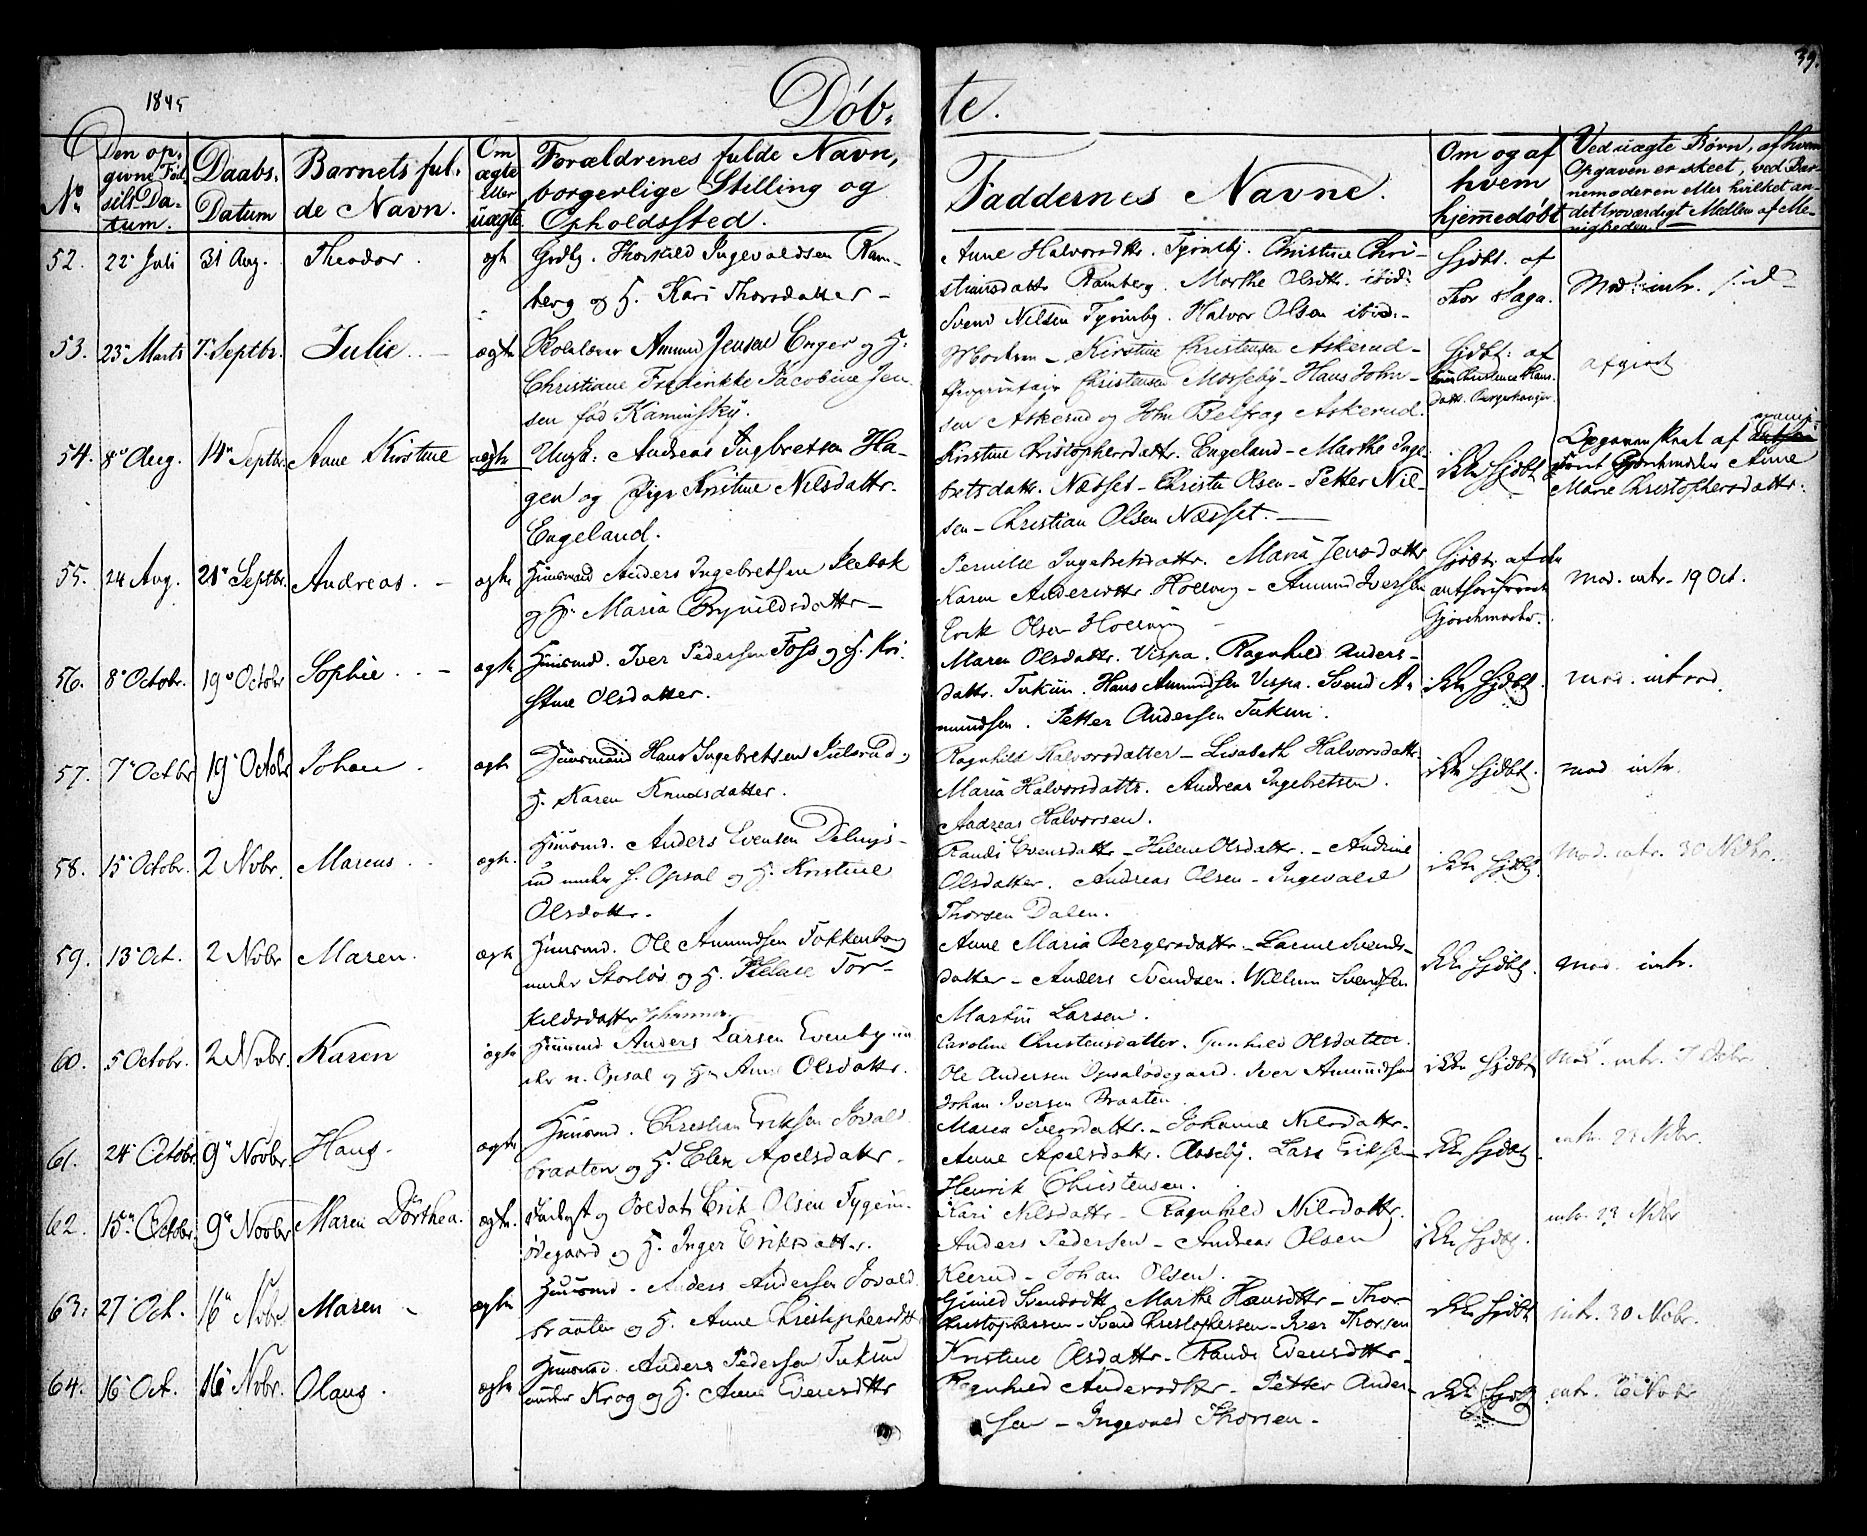 39.
1845
Døb-te.
No
Den op-
givne Fød-
sels Da-
tum.
Daabs-
Datum
Barnets ful-
de Navn.
Om
ægte
eller
uægte
Forældrenes fulde Navn,
borgerlige Stilling og
Opholdssted.
Faddernes Navne.
Om og af
hvem
hjemmedøbt
Ved uægte Børn, af hvem
Opgaven er skeet, ved Bar-
nemoderen eller hvilket an-
det troværdigt Medlem af Me-
nigheden.
52. 22 Juli 31 Aug. Theodor. ægt
Grdbg. Thorkild Ingevaldsen Ram-
berg og H. Kari Thorsdatter -
Anne Halvorsdttr. Tyrisby. Christine Chri-
stiansdattr Ramberg. Marthe Olsdtr. ibid:
Svend Nilsen Tyrisby. Halvor Olsen ibid: -
Hjdbt. af
Thor Haga.
Mod. intr.
53. 23 Marts 7 Septbr. Julie. - ægte
Skolelærer Amund Jensen Enger og H.
Christiane Fredrikke Jacobine Jen-
sen fød Kaminsky.
Kirstine Christensen Askerud -
Proprietair Christensen Mosseby - Hans John-
sen Askerud og John Belfrag Askerud.
Hjdbt: af
afgivet
54. 8 Aug. 14 Septbr. Anne Kirstine uægte
Ungk: Andreas Ingbretsen Ha-
gen og Pige Kristine Nilsdattr.
Engeland.
Kirstine Christophersdattr. Engeland - Marthe Inge
bretsdattr. Næsset - Christen Olsen - Petter Nil-
sen - Christian Olsen Næsset. -
ikke Hjdbt
Opgaven skeet af
Gjordemoder Anne
Marie Christophersdattr.
55. 24 Aug. 21 Septbr. Andreas. - ægte
Huusmand Anders Ingebretsen
og H. Maria Brynildsdatter -
Pernille Ingebretsdattr. Maria Jensdattr
Karen Andersdttr Hollrig - Amund Iversen
Erik Olsen
Hjdbt. af den
Gjordemoder.
Mod. intr. 19 Oct.
56. 8 Octobr. 19 Octobr Sophie. - ægte
Huusmd. Iver Pedersen Foss og H. Kri-
stine Olsdatter.
Maren Olsdattr. Vispa. Ragnhild Anders-
dattr. Tukun. Hans Amundsen Vispa. Svend A-
mundsen. Petter Andersen Tukun.
ikke Hjdbt.
mod. introd.
57. 7 Octbr 19 Octobr Johan. ægte
Huusmand Hans Ingebretsen Julsrud,
H. Karen Knudsdatter.
Ragnhild Halvorsdatter - Lisabeth Halvorsdattr.
Maria Halvorsdattr. Andreas Ingebretsen.
Andreas Halvorsen.
ikke Hjdbt.
mod. intr.
58. 15 Octobr. 2 Nobr. Marcus. ægte.
Huusmd. Anders Evensen
under S. Opsal og H. Kristine
Olsdattr.
Randi Evensdattr - Helene Olsdattr. - Andrine
Olsdatter. Andreas Olsen - Ingevald
Thorsen Dalen.
ikke Hjdbt.
Mod. intr. 30 Nobr.
59. 13 Oct. 2 Nobr Maren. ægte
Huusmd. Ole Amundsen Fokkenborg
under Storlos og H. Helene Tor-
kildsdatter
Anne Maria Bergersdattr - Larine Svends-
datter - Anders Svendsen. Willum Svendsen
Martin Larsen.
ikke Hjdbt.
Mod. intr.
60. 5 Octobr. 2 Nobr. Karen ægte
Huusmd Anders Larsen Evenby un-
der n. Opsal og H. Anne Olsdattr.
Caroline Christensdatter. Gunhild Olsdatter.
Ole Andersen Opsalødegaard. Iver Amundsen
Johan Iversen Braaten.
ikke Hjdbt
Mod. intr. 7 Decbr.
61. 24 Octobr 9 Novbr. Hans. ægte
Huusmd. Christian Eriksen Jovals-
braaten og H. Elen Apelsdattr.
Maren Iversdattr. - Johanne Nilsdattr.
Anne Apelsdattr. Aaseby. Lars Eriksen
Henrik Christensen.
ikke Hjdbt
intr. 23 Nobr.
62. 15 Octobr. 9 Novbr Maren Dorthea. ægte.
og Soldat Erik Olsen
ødegaard og H. Inger Eriksdatter.
Kari Nilsdattr - Ragnhild Nilsdattr.
Anders Pedersen - Andreas Olsen
Kleerud - Johan Olsen.
ikke Hjdbt.
intr. 23 Nobr
63. 27 Oct. 16 Nobr. Maren - ægte
Huusmd - Anders Andersen Jovald
braaten og H. Anne Christophersdttr
Gunild Svendsdtt Marthe Hansdttr - Thor
Christophersen - Svend Christophersen - Iver Thorsen
ikke Hjdbt
intr. 30 Nobr.
64. 16 Oct. 16 Nobr. Olaus. ægte
Huusmd. Anders Pedersen Tukun
under Krog og H. Anne Evensdttr
Kristine Olsdattr - Randi Evensdttr -
Ragnhild Andersdtter - Petter Ander-
sen - Ingevald Thorsen -
ikke Hjdbt
intr. 16 Nobr